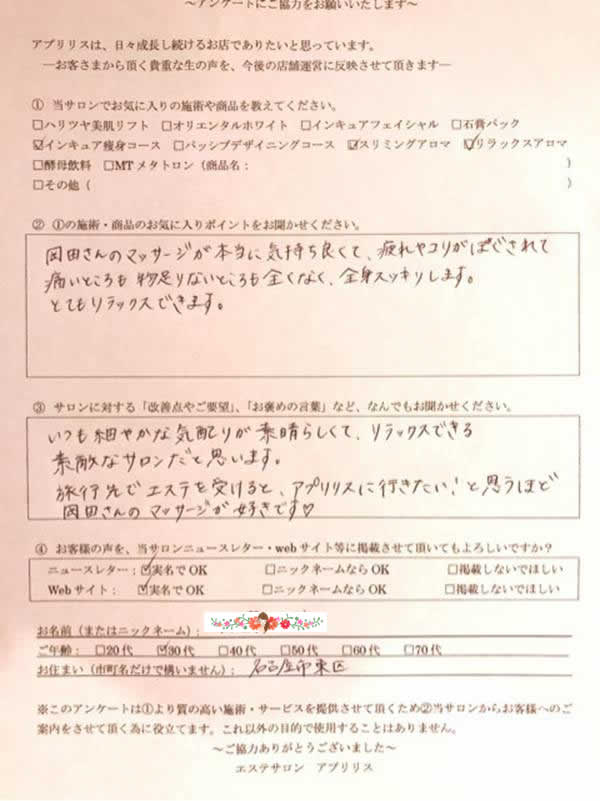 ～アンケートにご協力をお願いいたします～
アプリリスは、日々成長し続けるお店でありたいと思っています。
―お客さまから頂く貴重な生の声を、今後の店舗運営に反映させて頂きます―
① 当サロンでお気に入りの施術や商品を教えてください。
□ハリツヤ美肌リフト □オリエンタルホワイト □インキュアフェイシャル □石膏パック
☑インキュア痩身コース □パッシブデザイニングコース ☑スリミングアロマ ☑リラックスアロマ
□酵母飲料 □MTメタトロン（商品名： ）
□その他（ ）
② ①の施術・商品のお気に入りポイントをお聞かせください。
岡田さんのマッサージが本当に気持ち良くて、疲れやコリがほぐされて
痛いところも物足りないところも全くなく、全身スッキリします。
とてもリラックスできます。
③ サロンに対する「改善点やご要望」、「お褒めの言葉」など、なんでもお聞かせください。
いつも細やかな気配りが素晴らしくて、リラックスできる
素敵なサロンだと思います。
旅行先でエステを受けると、アプリリスに行きたい！と思うほど
岡田さんのマッサージが好きです♡
④ お客様の声を、当サロンニュースレター・webサイト等に掲載させて頂いてもよろしいですか？
ニュースレター：☑実名でOK □ニックネームならOK □掲載しないでほしい
Webサイト：☑実名でOK □ニックネームならOK □掲載しないでほしい
お名前（またはニックネーム）：
ご年齢：□20代 ☑30代 □40代 □50代 □60代 □70代
お住まい（市町名だけで構いません）：名古屋市東区
※このアンケートは①より質の高い施術・サービスを提供させて頂くため②当サロンからお客様へのご
案内をさせて頂く為に役立てます。これ以外の目的で使用することはありません。
～ご協力ありがとうございました～
エステサロン アプリリス